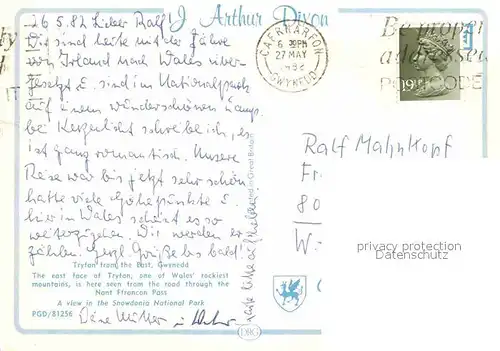 J Arthur Dixon
26.5.82 Lieber Ralf!
Wir sind heute mit der Fähre
von Irland nach Wales über-
gesetzt u. sind im Nationalpark
auf einem wunderschönen Camp.
bei Kerzenlicht schreibe ich, es
ist ganz romantisch. Unsere
Reise war bis jetzt sehr schön
hatte viele Höhepunkte u.
hier in Wales scheint es so
weiterzugehen. Wir werden er-
zählen. Herzl. Grüße bis bald!
Deine Mutter
Karte bitte aufheben!
CAERNARFON
6 30PM
27 MAY
1982
GWYNEDD
Be proper
addressed
POSTCODE
19½P
Ralf Mahnkopf
Fr
80
W-
privacy protection
Datenschutz
Printed in Great Britain
Tryfan from the East, Gwynedd
The east face of Tryfan, one of Wales' rockiest
mountains, is here seen from the road through the
Nant Ffrancon Pass
A view in the Snowdonia National Park
PGD/81256
DRG